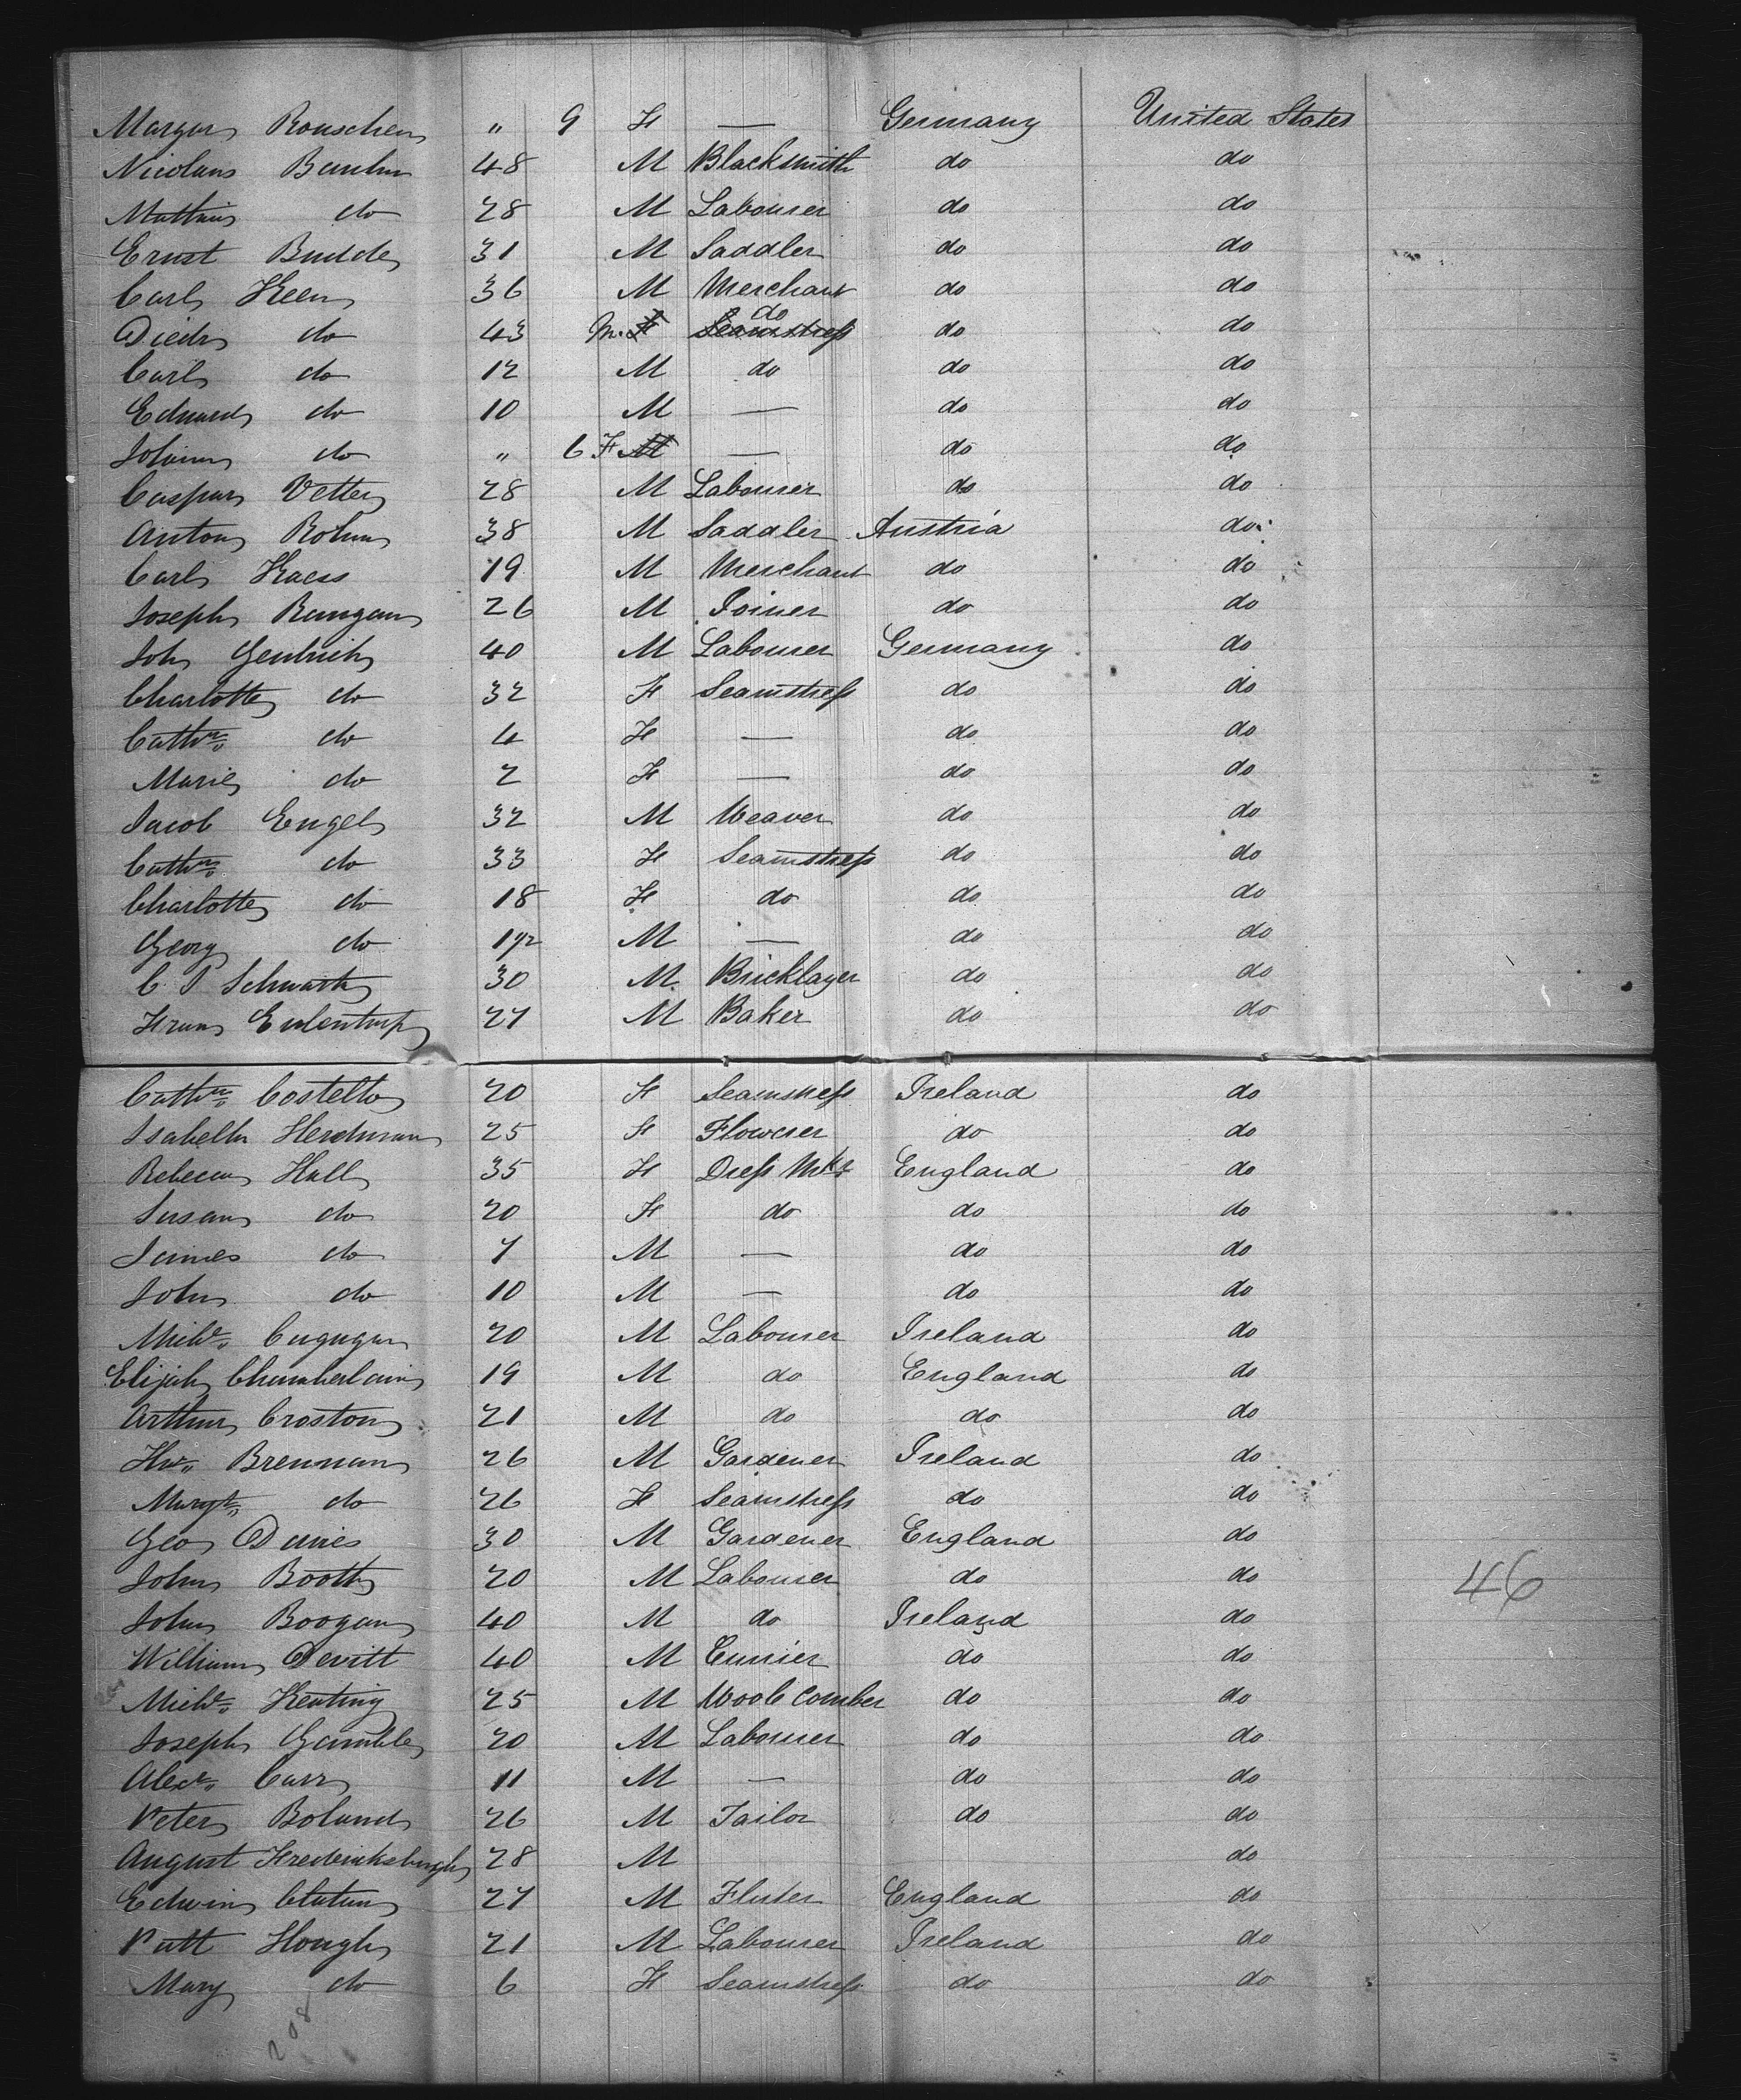 Margar Rouschen " 9 F — Germany United States
Nicolaus 48 M Blacksmith do do
Mathias do 28 M Labourer do do
Ernst Budde 31 M Saddler do do
Carl Keen 36 M Merchant do do
Diedr do 43 M. F Seamstress do do do
Carl do 12 M do do do
Eduard do 10 M — do do
Johann do " 6 F M — do do
Caspar Vetter 28 M Labourer do do
Anton Rohm 38 M Saddler Austria do
Carl Kaess 19 M Merchant do do
Joseph Rungan 26 M Joiner do do
Joh Gentrich 40 M Labourer Germany do
Charlotte do 32 F Seamstress do do
Cathn do 4 F — do do
Marie do 2 F — do do
Jacob Engel 32 M Weaver do do
Cathn do 33 F Seamstress do do
Charlotte do 18 F do do do
Georg do 1 1/2 M — do do
C. P Schwartz 30 M. Bricklayer do do
Franz Eulentrup 27 M Baker do do
Cathn Costello 20 F Seamstress Ireland do
Isabella Herdman 25 F Flowerer do do
Rebecca Hall 35 F Dress Mkr England do
Susan do 20 F do do do
James do 7 M — do do
John do 10 M — do do
Michl 20 M Labourer Ireland do
Elijah Chamberlain 19 M do England do
Arthur Croston 21 M do do do
Hu Brennan 26 M Gardener Ireland do
Margt do 26 F Seamstress do do
Geo Davies 30 M Gardener England do
John Booth 20 M Labourer do do
John Boogan 40 M do Ireland do
William Devitt 40 M Currier do do
Michl Keating 25 M Wool Comber do do
Joseph Gamble 20 M Labourer do do
Alexr Carr 11 M — do do
Peter Boland 26 M Tailor do do
August Fredericksburgh 28 M do
Edwin Clutum 27 M Fluter England do
Patt Hough 21 M Labourer Ireland do
Mary do 6 F Seamstress do do
46
208